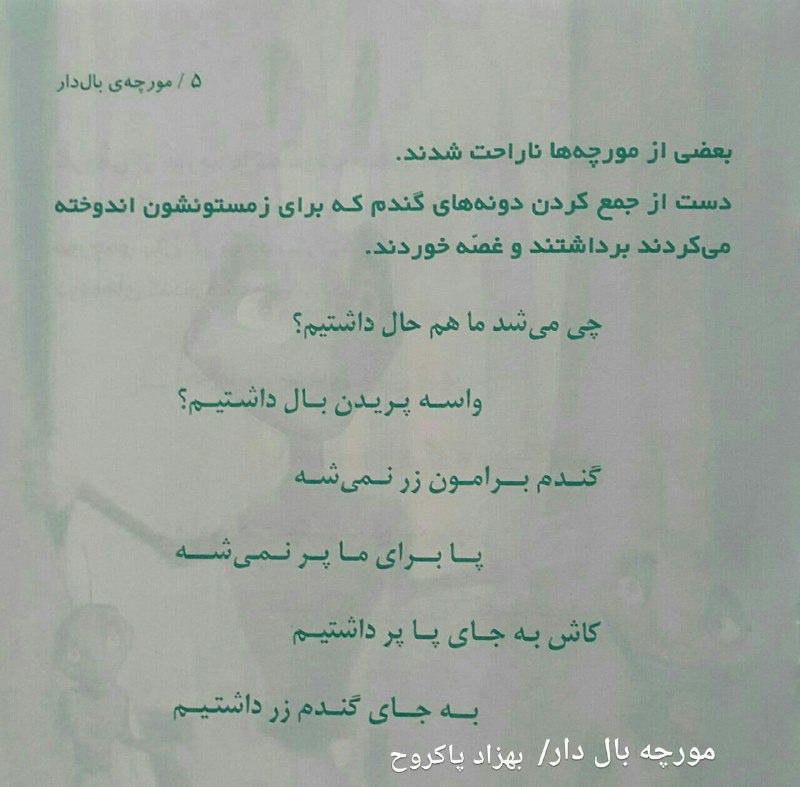 ۵ / مورچه‌ی بال‌دار
بعضی از مورچه‌ها ناراحت شدند.
دست از جمع کردن دونه‌های گندم که برای زمستونشون اندوخته
می‌کردند برداشتند و غصّه خوردند.
چی می‌شد ما هم حال داشتیم؟
واسه پریدن بال داشتیم؟
گندم برامون زر نمی‌شه
پا برای ما پر نمی‌شه
کاش به جای پا پر داشتیم
به جای گندم زر داشتیم
مورچه بال دار/ بهزاد پاکروح